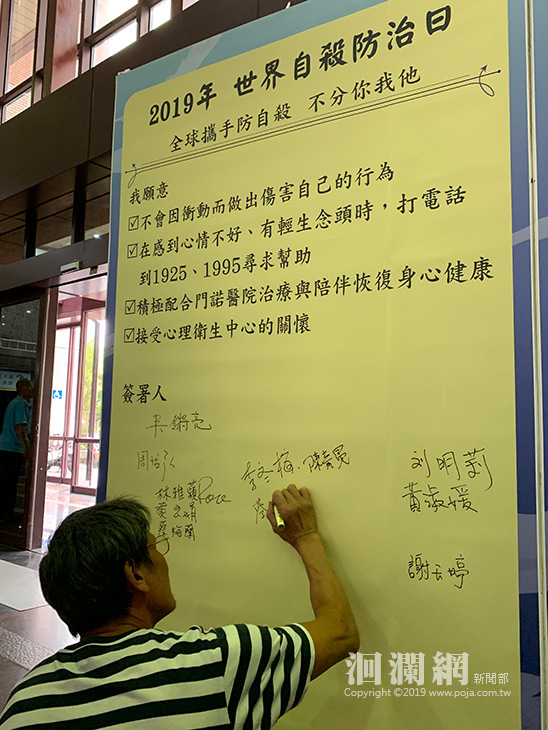 2019年 世界自殺防治日
全球攜手防自殺 不分你我他
我願意
☑不會因衝動而做出傷害自己的行為
☑在感到心情不好、有輕生念頭時，打電話
到1925、1995尋求幫助
☑積極配合門諾醫院治療與陪伴恢復身心健康
☑接受心理衛生中心的關懷
簽署人
林雅蘋 Rose
刘明莉
黃淑媛
謝云婷
洄瀾網 新聞部
Copyright ©2019 www.poja.com.tw